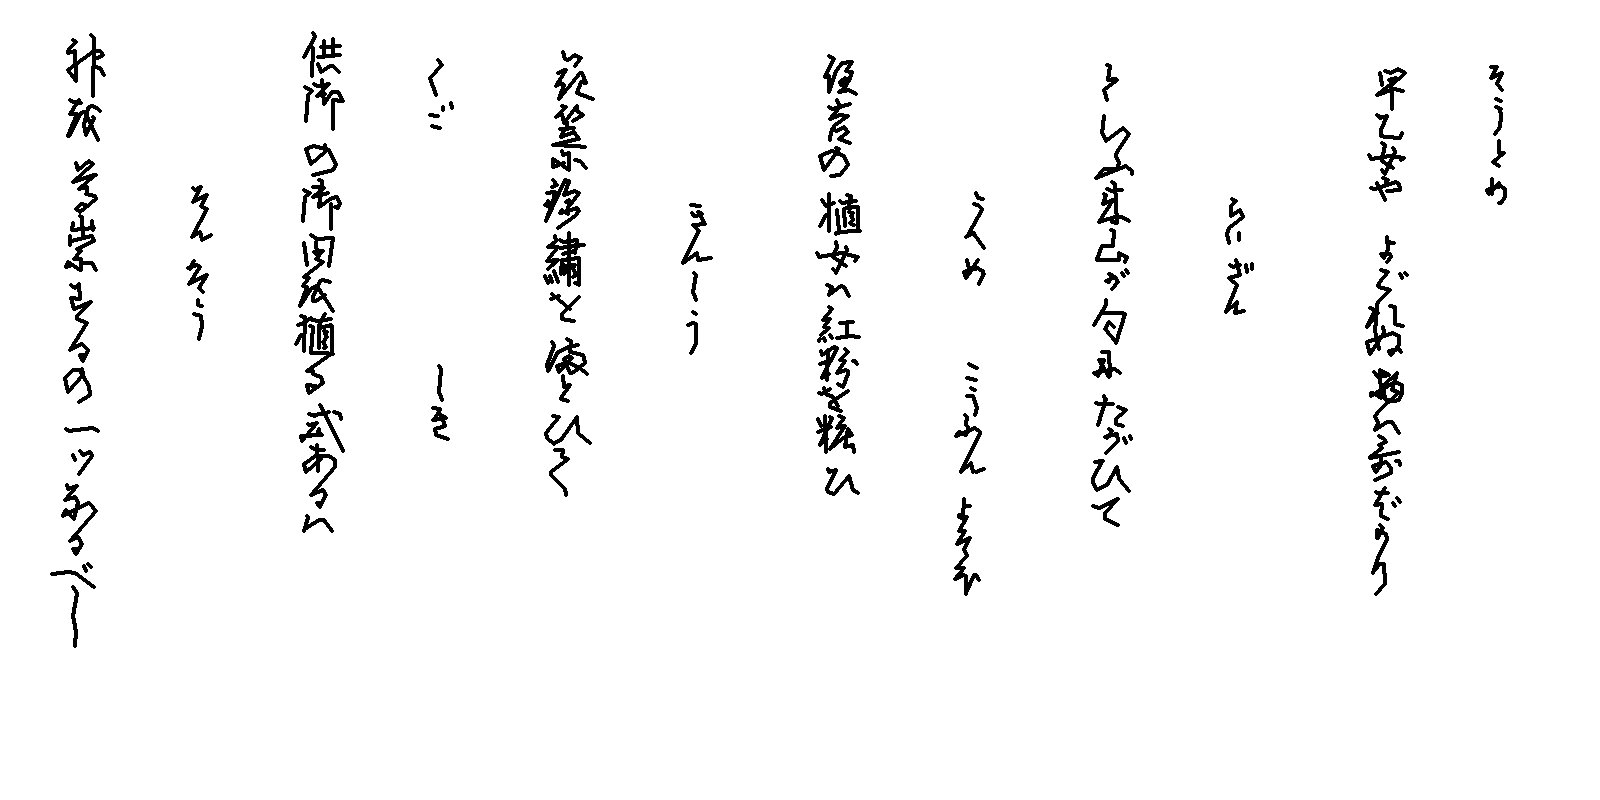 そうとめ
早乙女や よごれぬ物は哥ばかり
らいざん
といふ来山が句にたがひて
うへめ こうふん よそほ
住吉の植女は紅粉を粧ひ
きんしう
花笠に錦繍をまとひて
くご しき
供御の御田を植る式あるは
そんそう
神を尊崇するの一ツなるべし